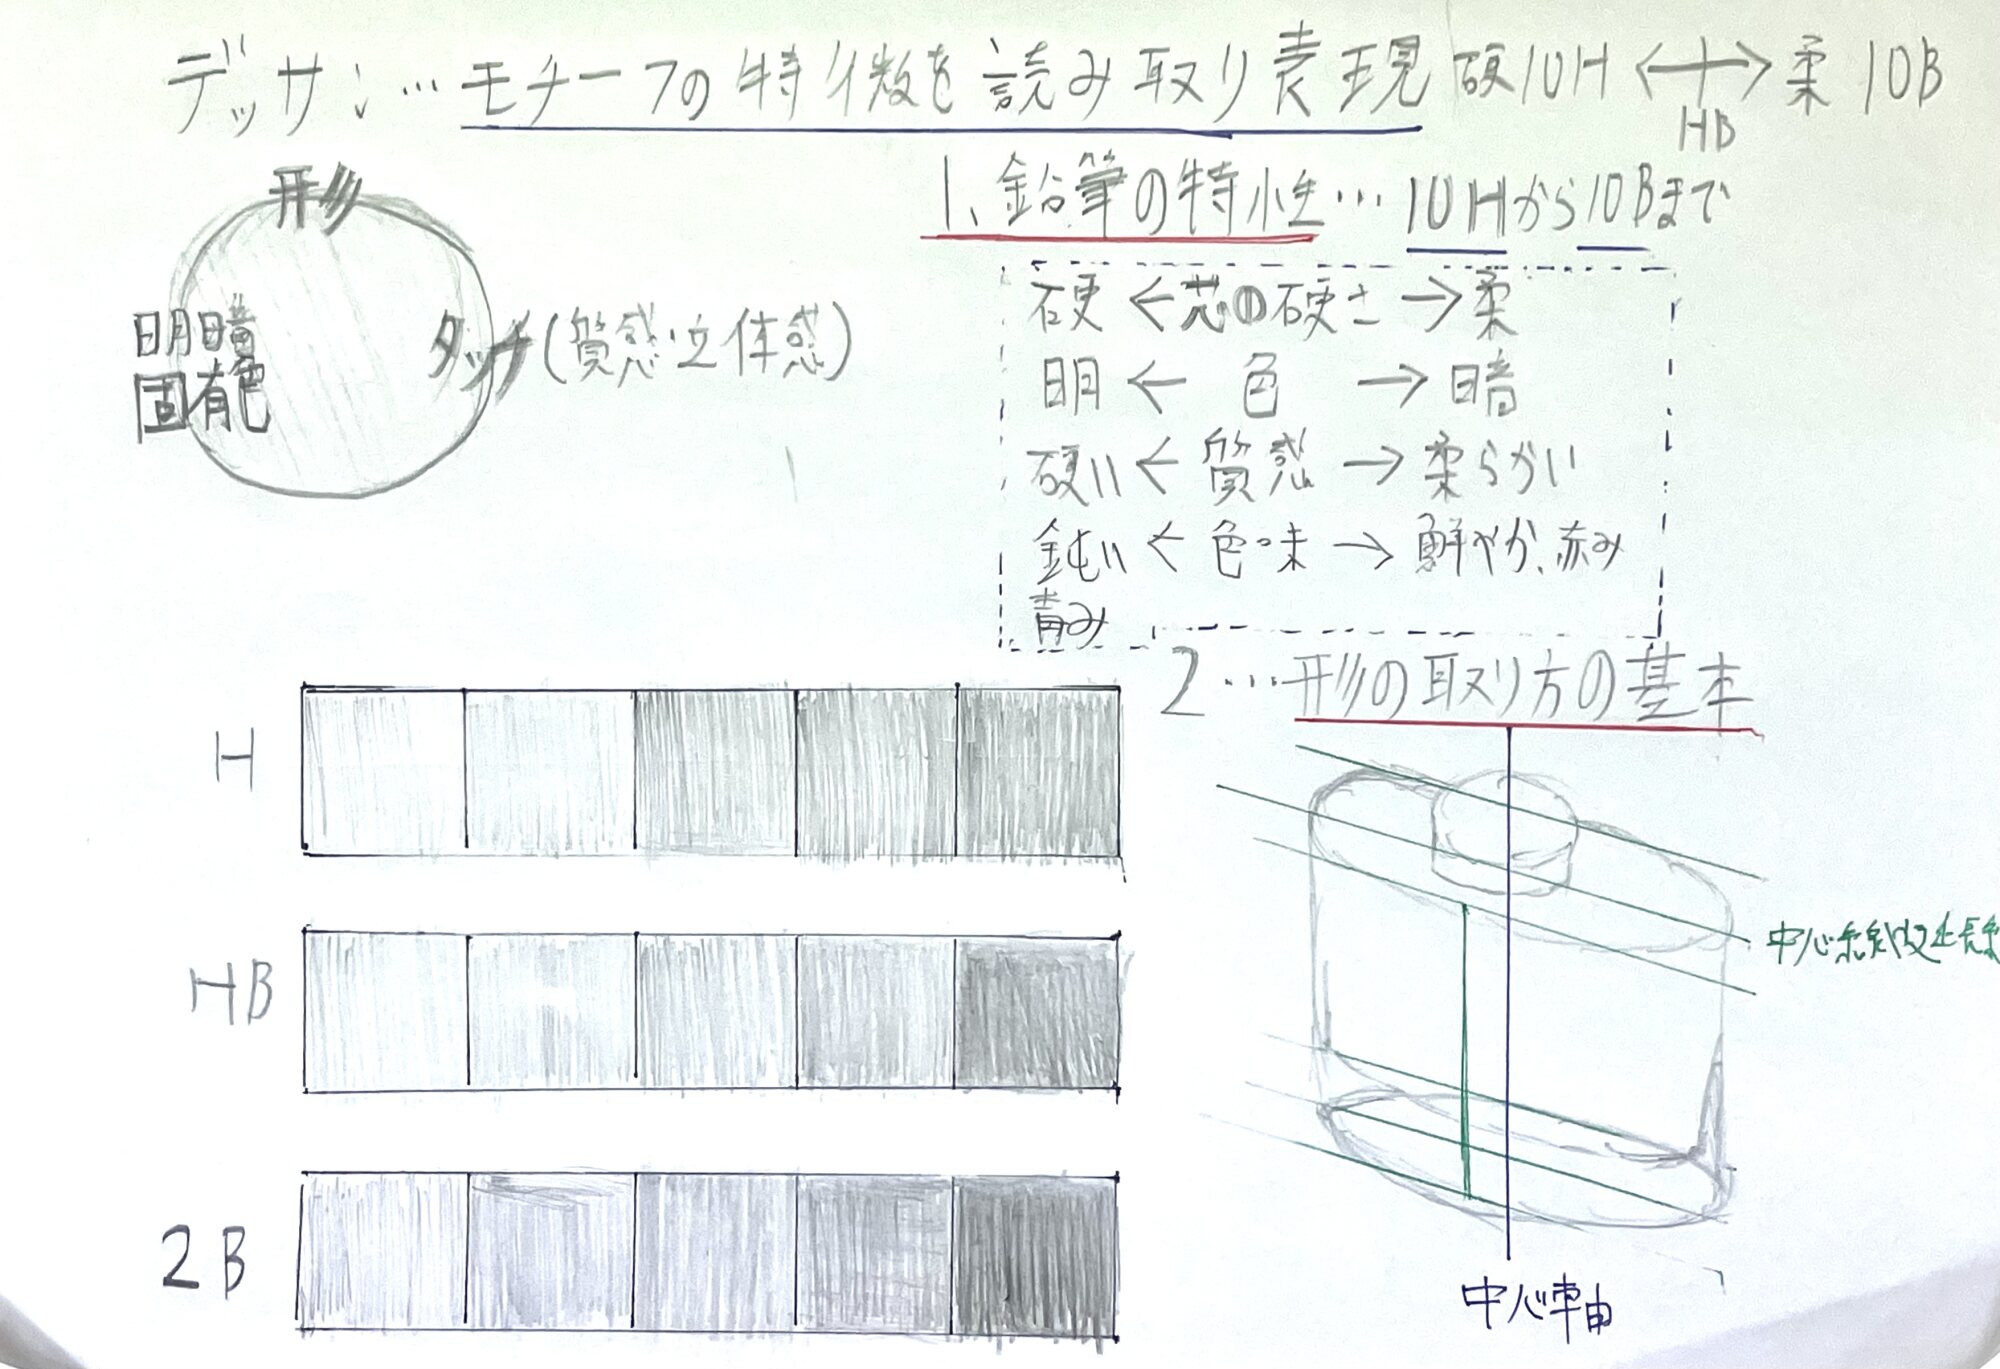 デッサン…モチーフの特徴を読み取り表現 硬10H ←┼→ 柔 10B
HB
1、鉛筆の特性… 10Hから10Bまで
形
硬 ← 芯の硬さ → 柔
明暗
固有色
タッチ(質感・立体感)
明 ← 色 → 暗
硬い ← 質感 → 柔らかい
鈍い ← 色味 → 鮮やか、赤み
青み
2…形の取り方の基本
H
HB
2B
中心軸